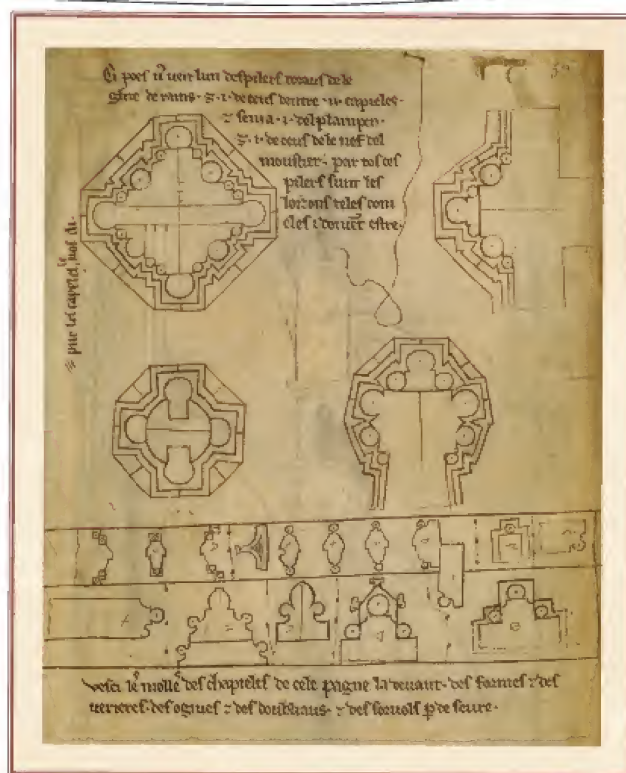 Ci poes uͦ veir lun des pilers toraus de le
glize de rains · ⁊ · i · de ceus dentre · ii · capieles ·
⁊ sen i a · i · del plain pen ·
⁊ · i · de ceus de le nef del
moustier · par tos ces
pilers sunt les
loizons teles com
eles i doivēt estre ·
vesci les molles des chapieles de cele pagne la devant · des formes ⁊ des
verieres · des ogives ⁊ des doubliaus ⁊ des sorvols p̄ deseure ·